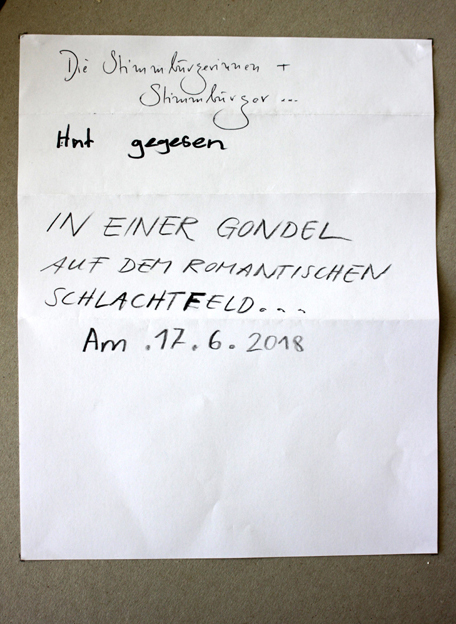 Die Stimmbürgerinnen +
Stimmbürger ...
Hat gegesen
IN EINER GONDEL
AUF DEM ROMANTISCHEN
SCHLACHTFELD...
Am .17.6.2018